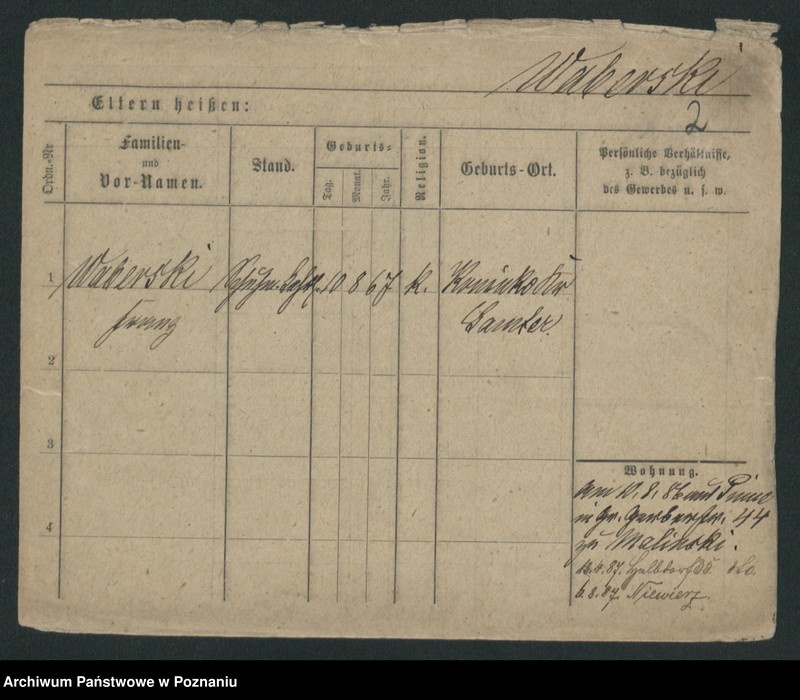 1
Waberski
2
Eltern heißen:
Ordn.-Nr
Familien-
und
Vor-Namen.
Stand.
Geburts-
Tag.
Monat.
Jahr.
Religion.
Geburts-Ort.
Persönliche Verhältnisse,
z. B. bezüglich
des Gewerbes u. s. w.
1 Waberski 10 8 67 K. Kr
Franz Samter.
2
3
4
Wohnung.
am 10.8.86 aus Pinne
in Gr. Gerberstr. 44
zu Malinski.
.87. Halbdorfstr.
6.8.87. Niewierz.
Archiwum Państwowe w Poznaniu